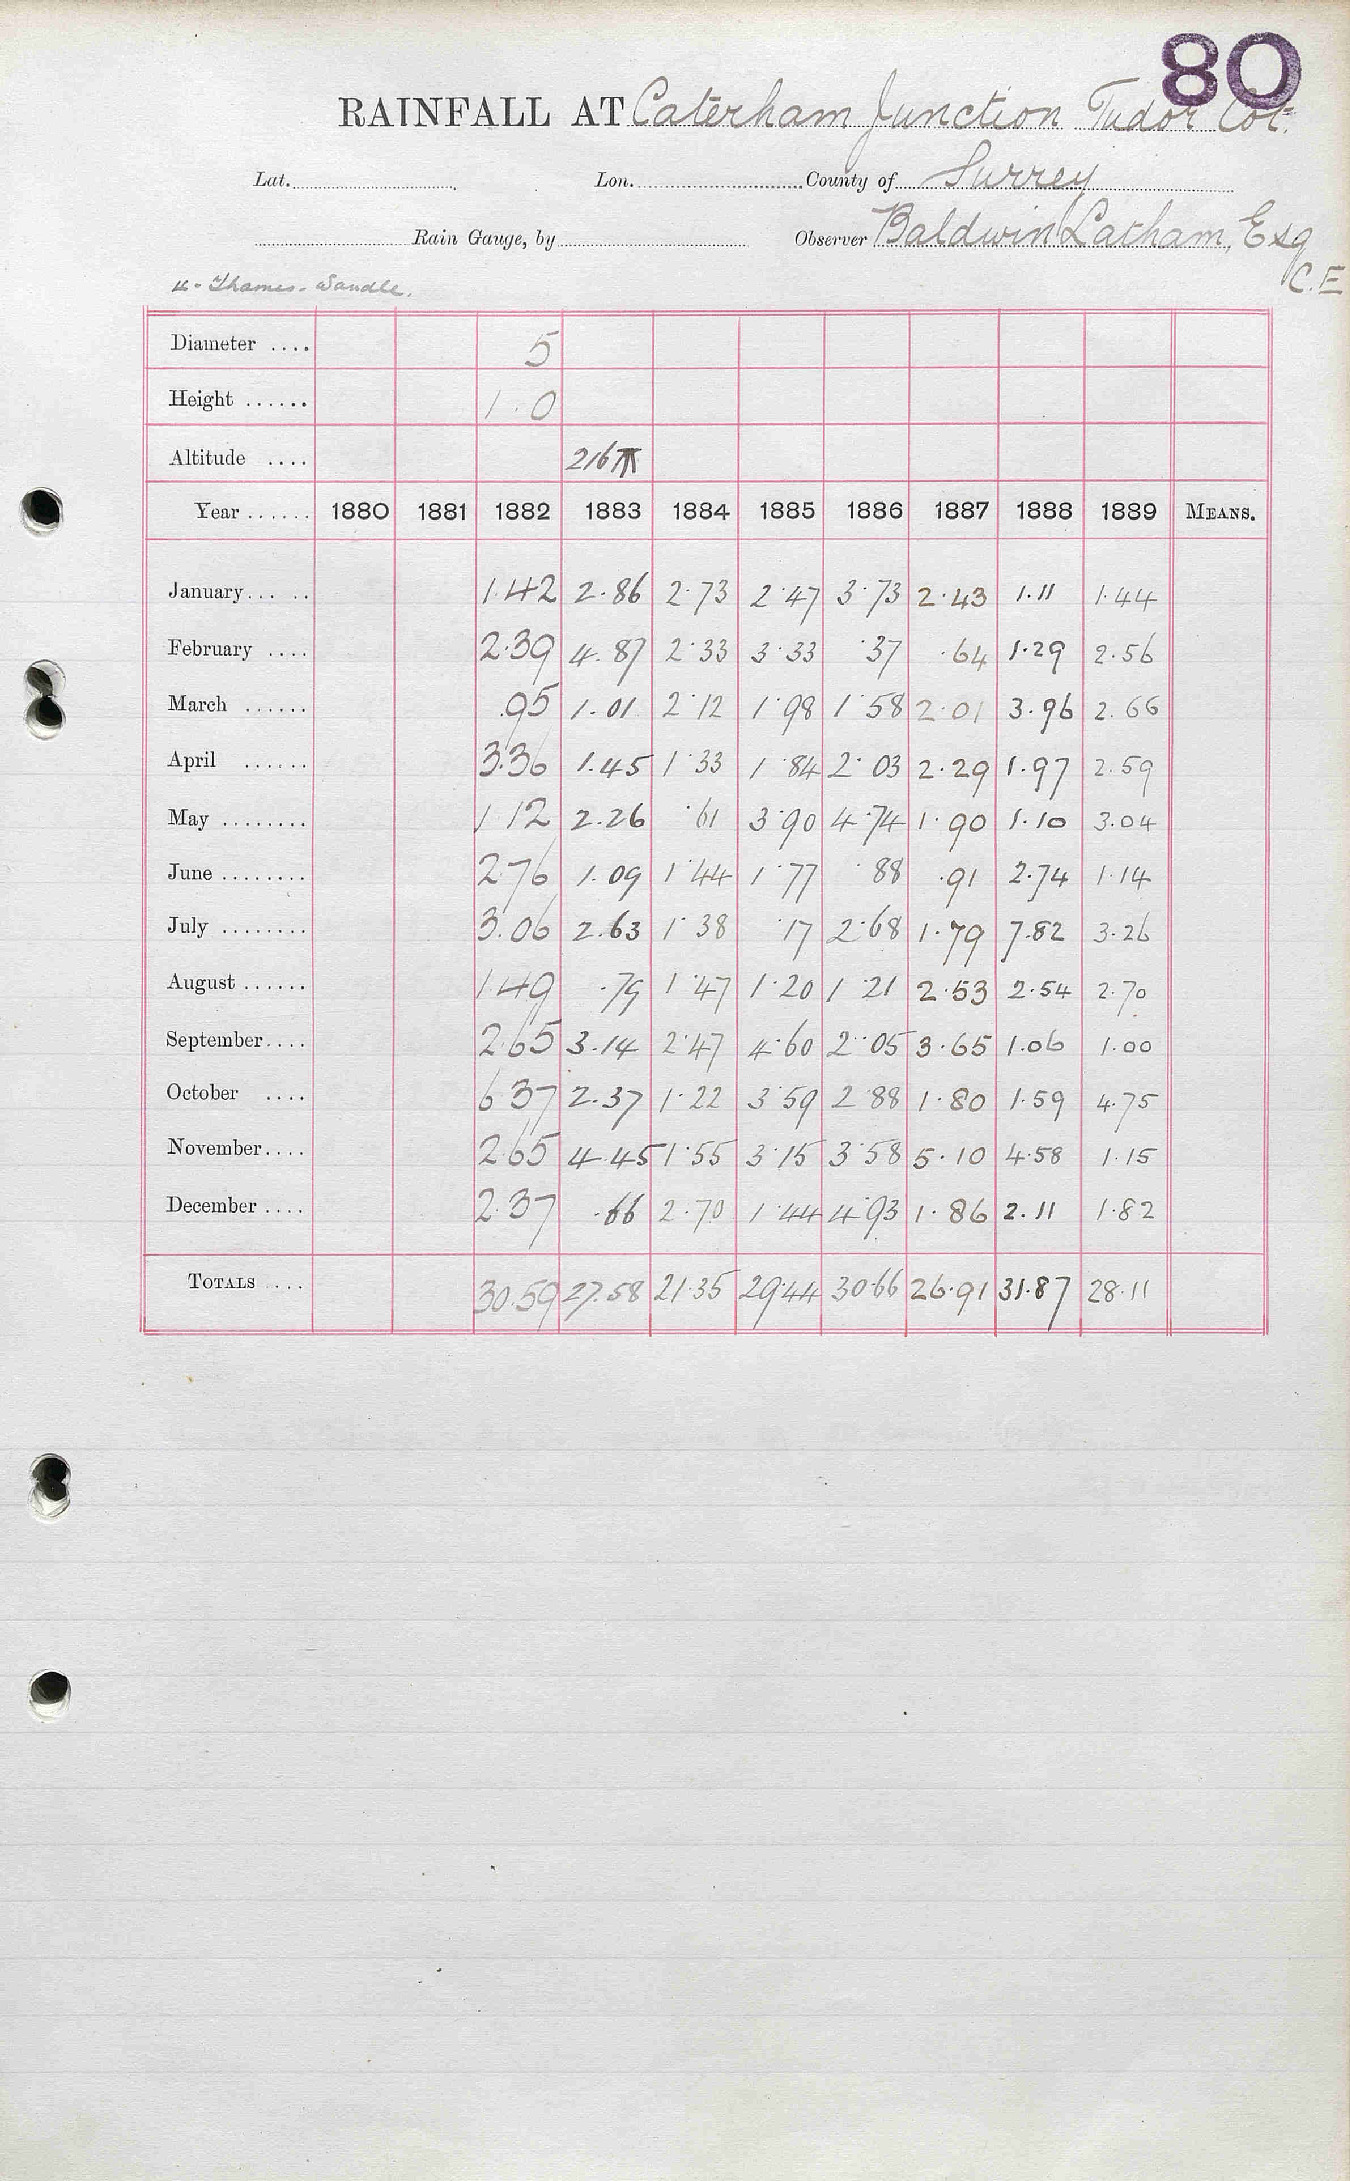 80
RAINFALL AT Caterham Junction Tudor Cot.
Lat. Lon. County of Surrey
Rain Gauge, by Observer Baldwin Latham, Esq
C.E
Thames - Wandle.
Diameter .... 5
Height ...... 1.0
Altitude .... 216
Year ...... 1880 1881 1882 1883 1884 1885 1886 1887 1888 1889 MEANS.
January... .. 1.42 2.86 2.73 2.47 3.73 2.43 1.11 1.44
February .... 2.39 4.87 2.33 3.33 .37 .64 1.29 2.56
March ...... .95 1.01 2.12 1.98 1.58 2.01 3.96 2.66
April ...... 3.36 1.45 1.33 1.84 2.03 2.29 1.97 2.59
May ........ 1.12 2.26 .61 3.90 4.74 1.90 1.10 3.04
June ........ 2.76 1.09 1.44 1.77 .88 .91 2.74 1.14
July ........ 3.06 2.63 1.38 .17 2.68 1.79 7.82 3.26
August ...... 1.49 .79 1.47 1.20 1.21 2.53 2.54 2.70
September.... 2.65 3.14 2.47 4.60 2.05 3.65 1.06 1.00
October .... 6.37 2.37 1.22 3.59 2.88 1.80 1.59 4.75
November.... 2.65 4.45 1.55 3.15 3.58 5.10 4.58 1.15
December .... 2.37 .66 2.70 1.44 4.93 1.86 2.11 1.82
TOTALS .... 30.59 27.58 21.35 29.44 30.66 26.91 31.87 28.11